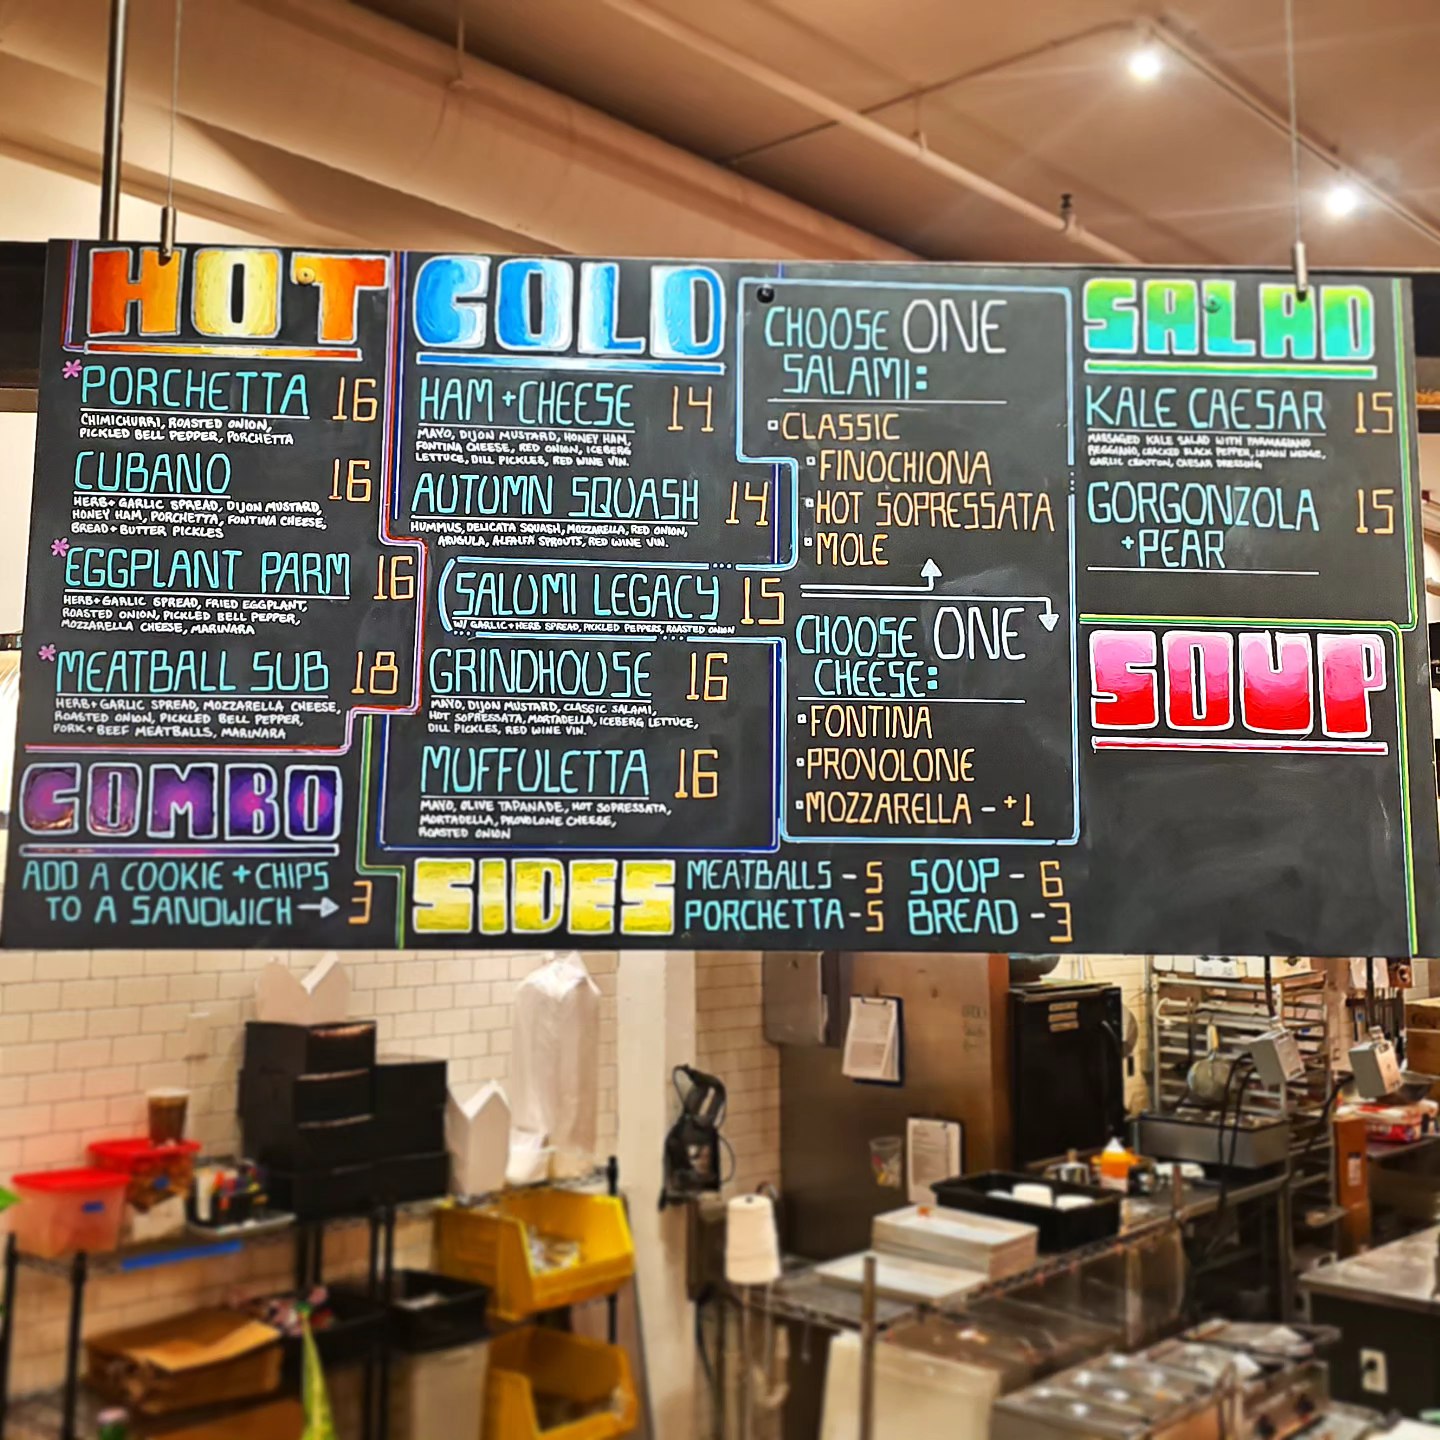 HOT
*PORCHETTA 16
CHIMICHURRI, ROASTED ONION,
PICKLED BELL PEPPER, PORCHETTA
CUBANO 16
HERB + GARLIC SPREAD, DIJON MUSTARD,
HONEY HAM, PORCHETTA, FONTINA CHEESE,
BREAD + BUTTER PICKLES
*EGGPLANT PARM 16
HERB + GARLIC SPREAD, FRIED EGGPLANT,
ROASTED ONION, PICKLED BELL PEPPER,
MOZZARELLA CHEESE, MARINARA
*MEATBALL SUB 18
HERB + GARLIC SPREAD, MOZZARELLA CHEESE,
ROASTED ONION, PICKLED BELL PEPPER,
PORK + BEEF MEATBALLS, MARINARA
COMBO
ADD A COOKIE + CHIPS
TO A SANDWICH → 3
COLD
HAM + CHEESE 14
MAYO, DIJON MUSTARD, HONEY HAM,
FONTINA CHEESE, RED ONION, ICEBERG
LETTUCE, DILL PICKLES, RED WINE VIN.
AUTUMN SQUASH 14
HUMMUS, DELICATA SQUASH, MOZZARELLA, RED ONION,
ARUGULA, ALFALFA SPROUTS, RED WINE VIN.
SALUMI LEGACY 15
W/ GARLIC + HERB SPREAD, PICKLED PEPPERS, ROASTED ONION
GRINDHOUSE 16
MAYO, DIJON MUSTARD, CLASSIC SALAMI,
HOT SOPRESSATA, MORTADELLA, ICEBERG LETTUCE,
DILL PICKLES, RED WINE VIN.
MUFFULETTA 16
MAYO, OLIVE TAPANADE, HOT SOPRESSATA,
MORTADELLA, PROVOLONE CHEESE,
ROASTED ONION
CHOOSE ONE
SALAMI:
CLASSIC
FINOCHIONA
HOT SOPRESSATA
MOLE
CHOOSE ONE
CHEESE:
FONTINA
PROVOLONE
MOZZARELLA - +1
SIDES
MEATBALLS - 5 SOUP - 6
PORCHETTA - 5 BREAD - 3
SALAD
KALE CAESAR 15
MASSAGED KALE SALAD WITH PARMAGIANO
REGGIANO, CRACKED BLACK PEPPER, LEMON WEDGE,
GARLIC CROUTON, CAESAR DRESSING
GORGONZOLA 15
+ PEAR
SOUP